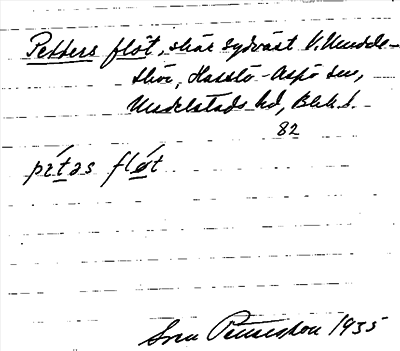 Petters flöt, skär sydväst V. Knudde-
skär, Hasslö-Aspö sn,
Medelstads hd, Blek. l.
82
petəs fløt
Sven Pettersson 1935